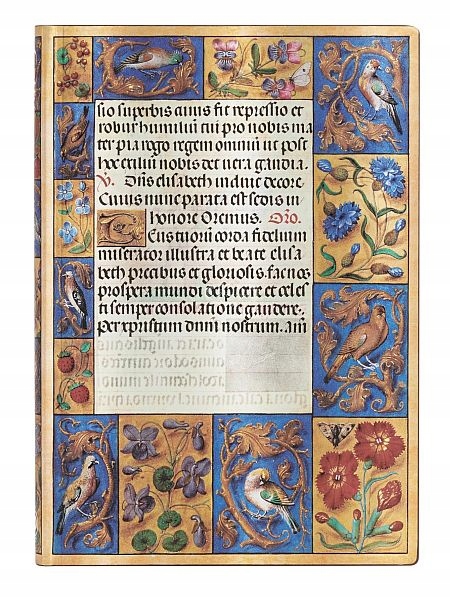 sio superbis cuius fit repressio et
robur humiliū cui pro nobis ma
ter pia rogo regem omniū ut post
hoc exiliū nobis det uera gaudia.
V. Dn̄s elisabeth induit decore
Cuius nunc parata est sedis in
honore Oremus. Oro.
Deus tuorū corda fidelium
miserator illustra et beate elisa
beth precibus et gloriosis fac nos
prospera mundi despicere et celes
ti semper consolatione gaudere.
Per xpristum dnm̄ nostrum. am̄